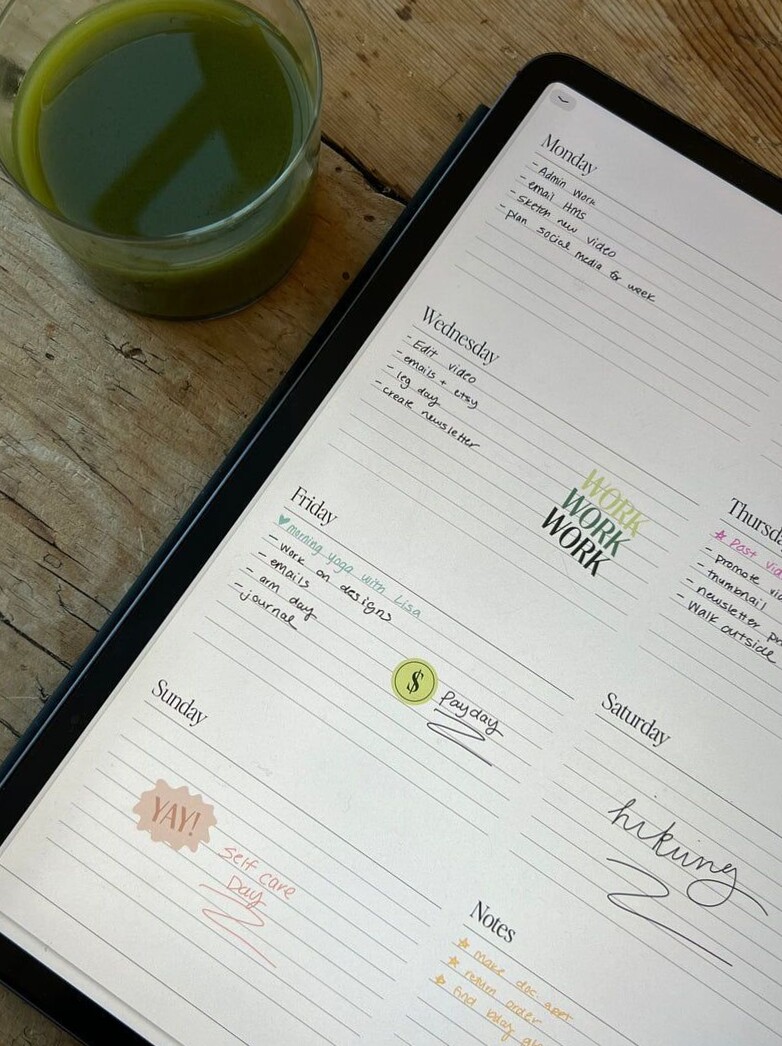 Monday
- Admin Work
- email HMS
- sketch new video
- plan social media for week
Wednesday
- Edit video
- emails + etsy
- leg day
- create newsletter
WORK
WORK
WORK
Thursda
★ Post vid
- promote vid
- thumbnail
- newsletter pr
- Walk outside
Friday
♥ morning yoga with Lisa
- Work on designs
- emails
- arm day
- journal
$ Payday
Saturday
hiking
Sunday
YAY!
Self care
Day
Notes
★ make doc. appt
★ return order
★ find